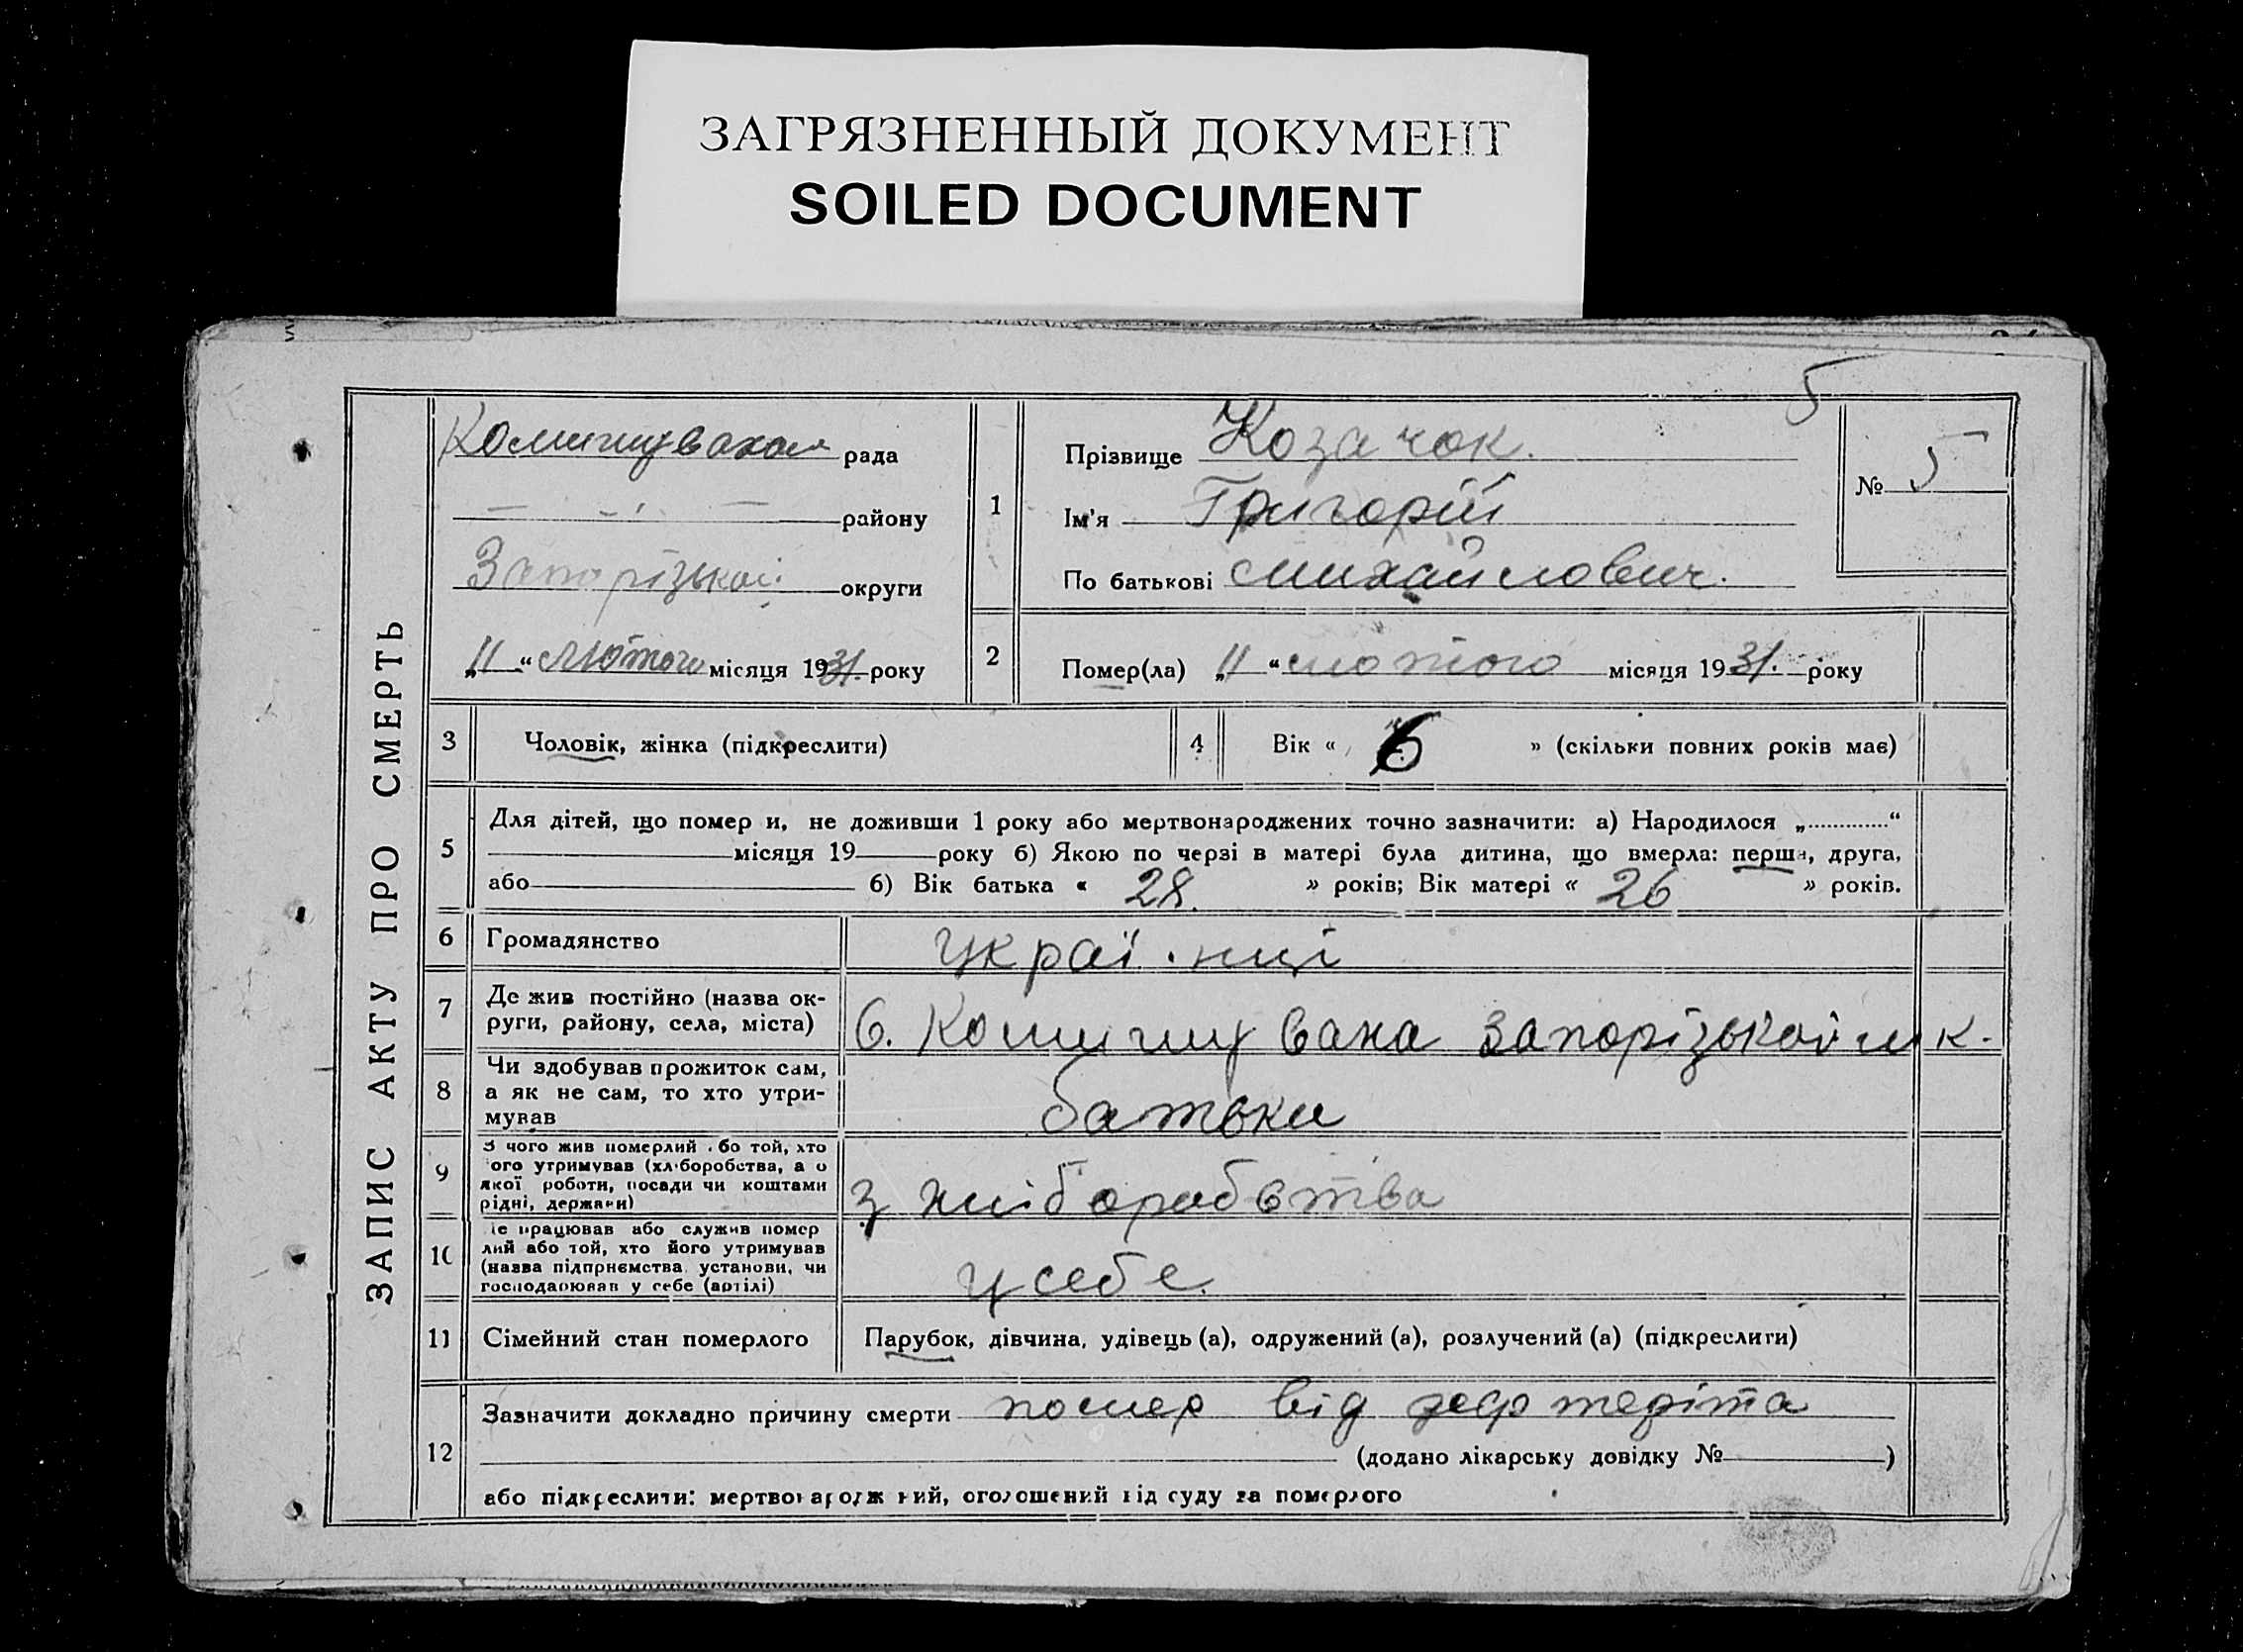 ЗАГРЯЗНЕННЫЙ ДОКУМЕНТ
SOILED DOCUMENT
5
ЗАПИС АКТУ ПРО СМЕРТЬ
Комишуваха рада
району
Запорізькой округи
„11“ лютого місяця 1931. року
1
Прізвище Козачок.
Ім'я Григорій
По батькові Михайлович.
№ 5
2 Помер(ла) „11“ лютого місяця 1931. року
3 Чоловік, жінка (підкреслити)
4 Вік « 6 » (скільки повних років має)
5 Для дітей, що помер и, не доживши 1 року або мертвонароджених точно зазначити: а) Народилося „.............“
місяця 19 року б) Якою по черзі в матері була дитина, що вмерла: перша, друга,
або б) Вік батька « 28. » років; Вік матері « 26 » років.
6 Громадянство украї.нці
7 Де жив постійно (назва ок-
руги, району, села, міста) с. Комишуваха Запорізькой
8 Чи здобував прожиток сам,
а як не сам, то хто утри-
мував батьки
9 З чого жив померлий або той, хто
його утримував (хліборобства, а о
якої роботи, посади чи коштами
рідні, держави) з хліборобства
10 Де працював або служив помер
лий або той, хто його утримував
(назва підприємства, установи, чи
господарював у себе (артілі) у себе.
11 Сімейний стан померлого Парубок, дівчина, удівець (а), одружений (а), розлучений (а) (підкреслити)
12 Зазначити докладно причину смерти помер від
(додано лікарську довідку № )
або підкреслити: мертвонароджений, оголошений від суду за померлого